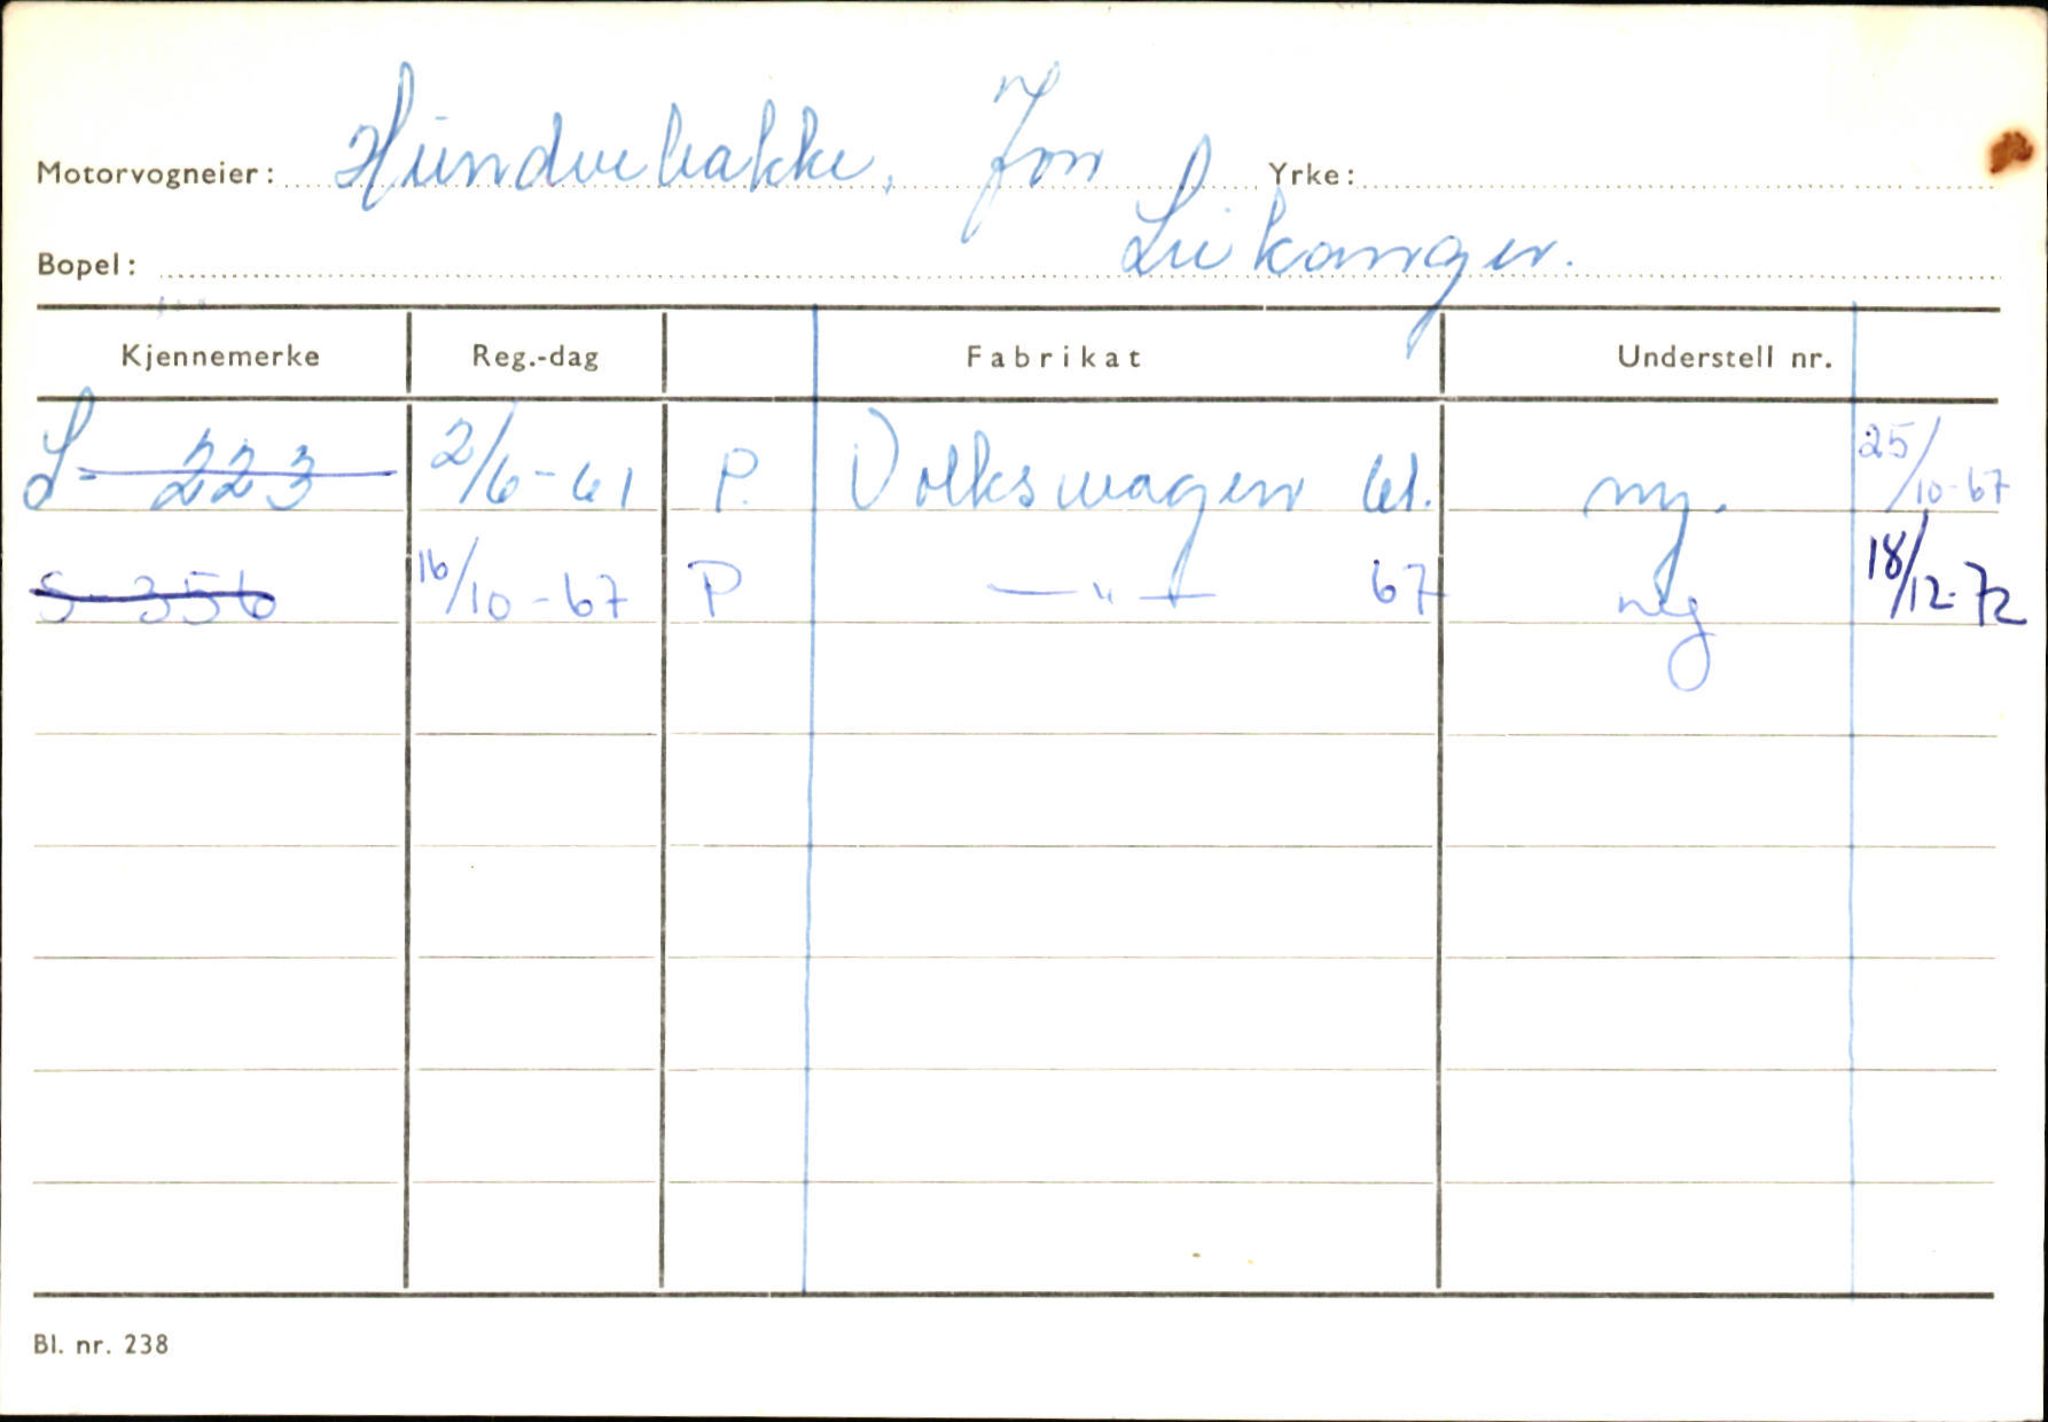 Motorvogneier: Hundvebakke, Jon Yrke:
Bopel: Leikanger.
Kjennemerke Reg.-dag Fabrikat Understell nr.
S- 223 2/6-61 P. Volkswagen 61. ny. 25/10-67
S-356 16/10-67 P —"— 67 ny 18/12-72
Bl. nr. 238